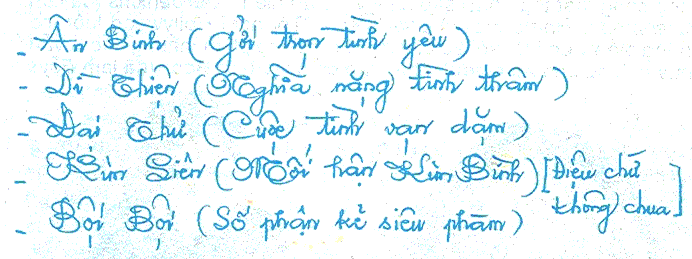 - Ân Bình (Gởi trọn tình yêu)
- Dĩ Thiện (Nghĩa nặng tình thâm)
- Đại Thử (Cuộc tình vạn dặm)
- Kim Liên (Mối hận Kim Bình) [Điệu chứ không chua]
- Bội Bội (Số phận kẻ siêu phàm)